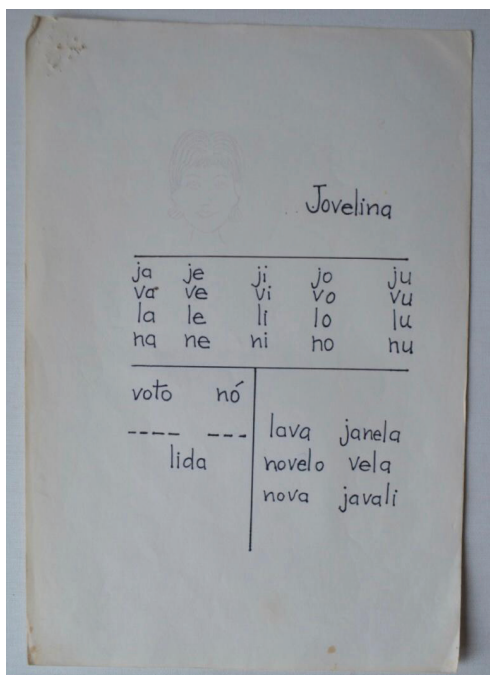 Jovelina
ja je ji jo ju
va ve vi vo vu
la le li lo lu
na ne ni no nu
voto nó
lida
lava janela
novelo vela
nova javali